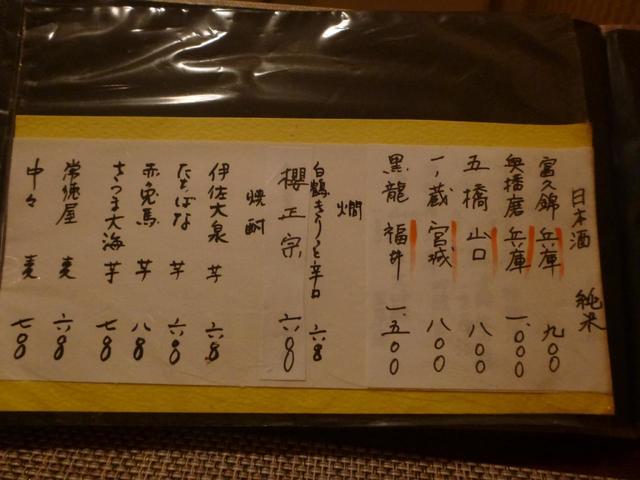 日本酒 純米
富久錦 兵庫 九〇〇
奥播磨 兵庫 一、〇〇〇
五橋 山口 八〇〇
一ノ蔵 宮城 八〇〇
黒龍 福井 一、五〇〇
燗
白鶴きりっと辛口 六〇8
櫻正宗 六〇〇
焼酎
伊佐大泉 芋 六〇8
たちばな 芋 六〇〇
赤兎馬 芋 八〇8
さつま大海 芋 七〇8
常徳屋 麦 六〇8
中々 麦 七〇8